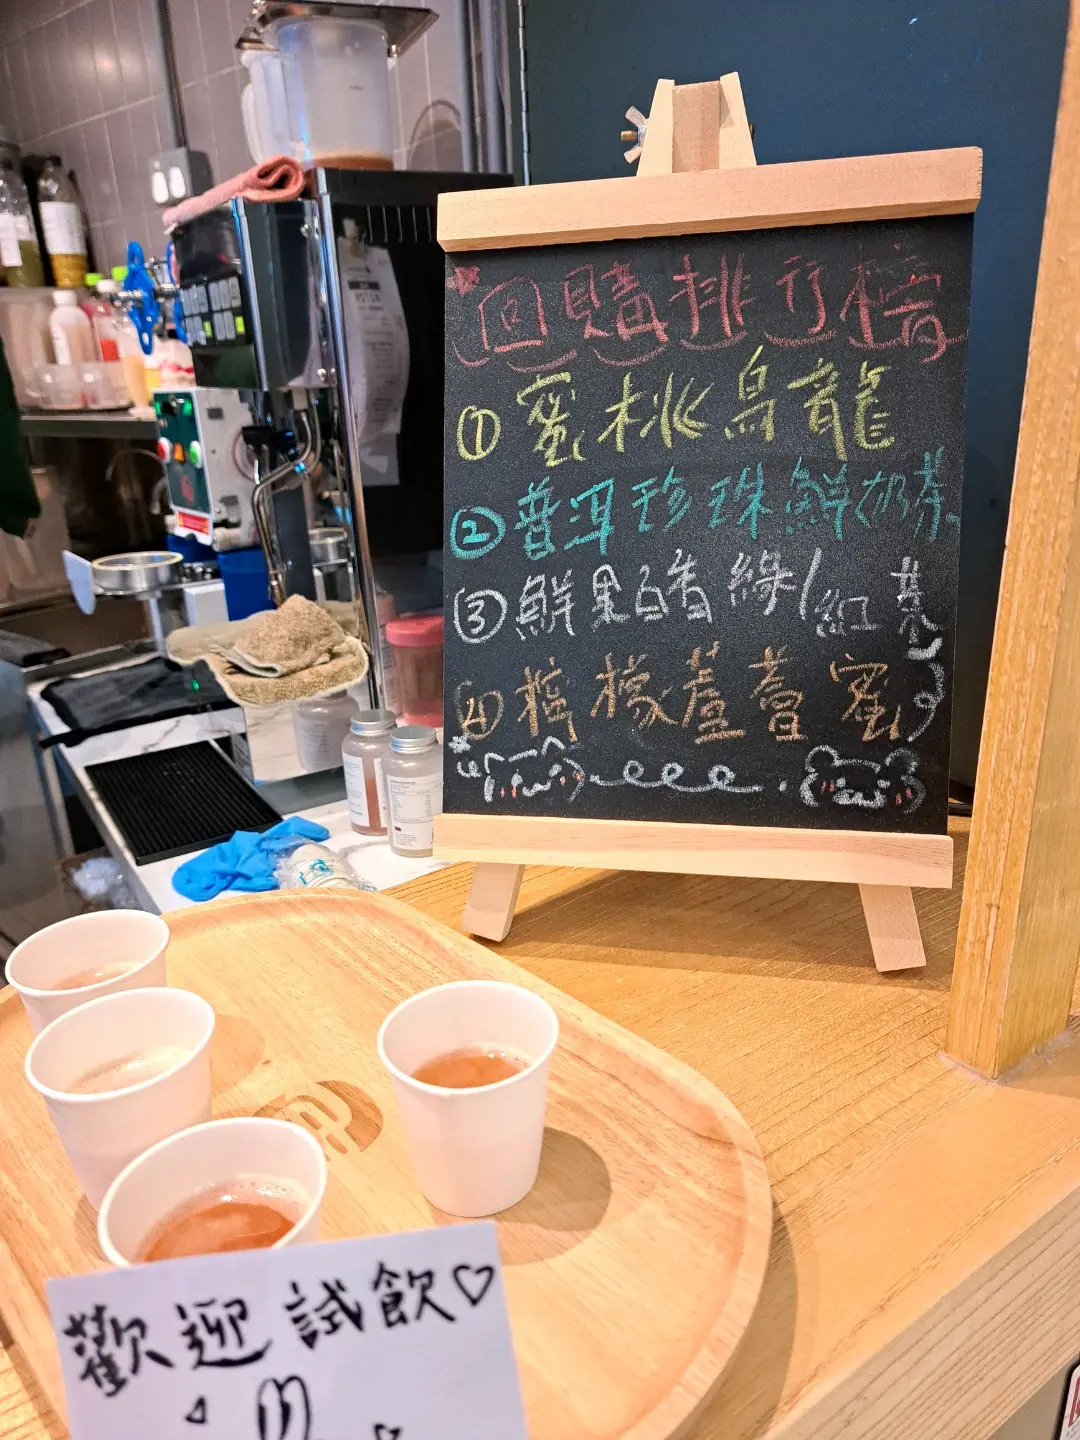 回購排行榜
① 蜜桃烏龍
② 普洱珍珠鮮奶茶
③ 鮮果百香綠/紅茶
④ 檸檬蘆薈蜜
歡迎試飲♡